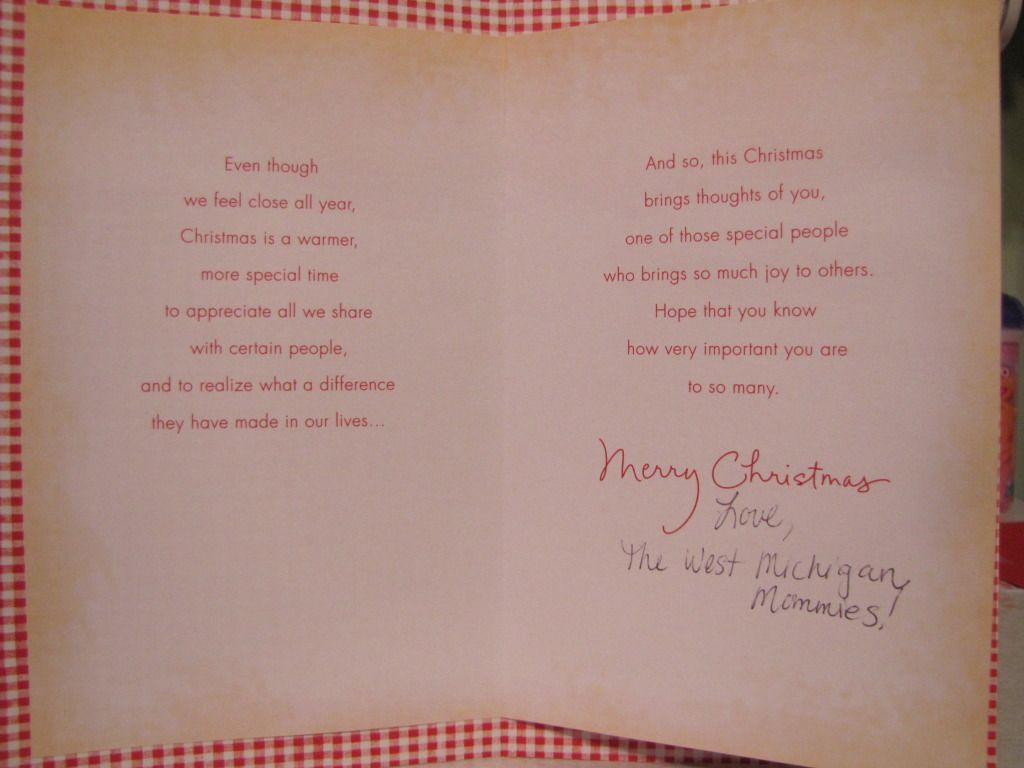 Even though
we feel close all year,
Christmas is a warmer,
more special time
to appreciate all we share
with certain people,
and to realize what a difference
they have made in our lives...
And so, this Christmas
brings thoughts of you,
one of those special people
who brings so much joy to others.
Hope that you know
how very important you are
to so many.
Merry Christmas
Love,
The West Michigan
Mommies!